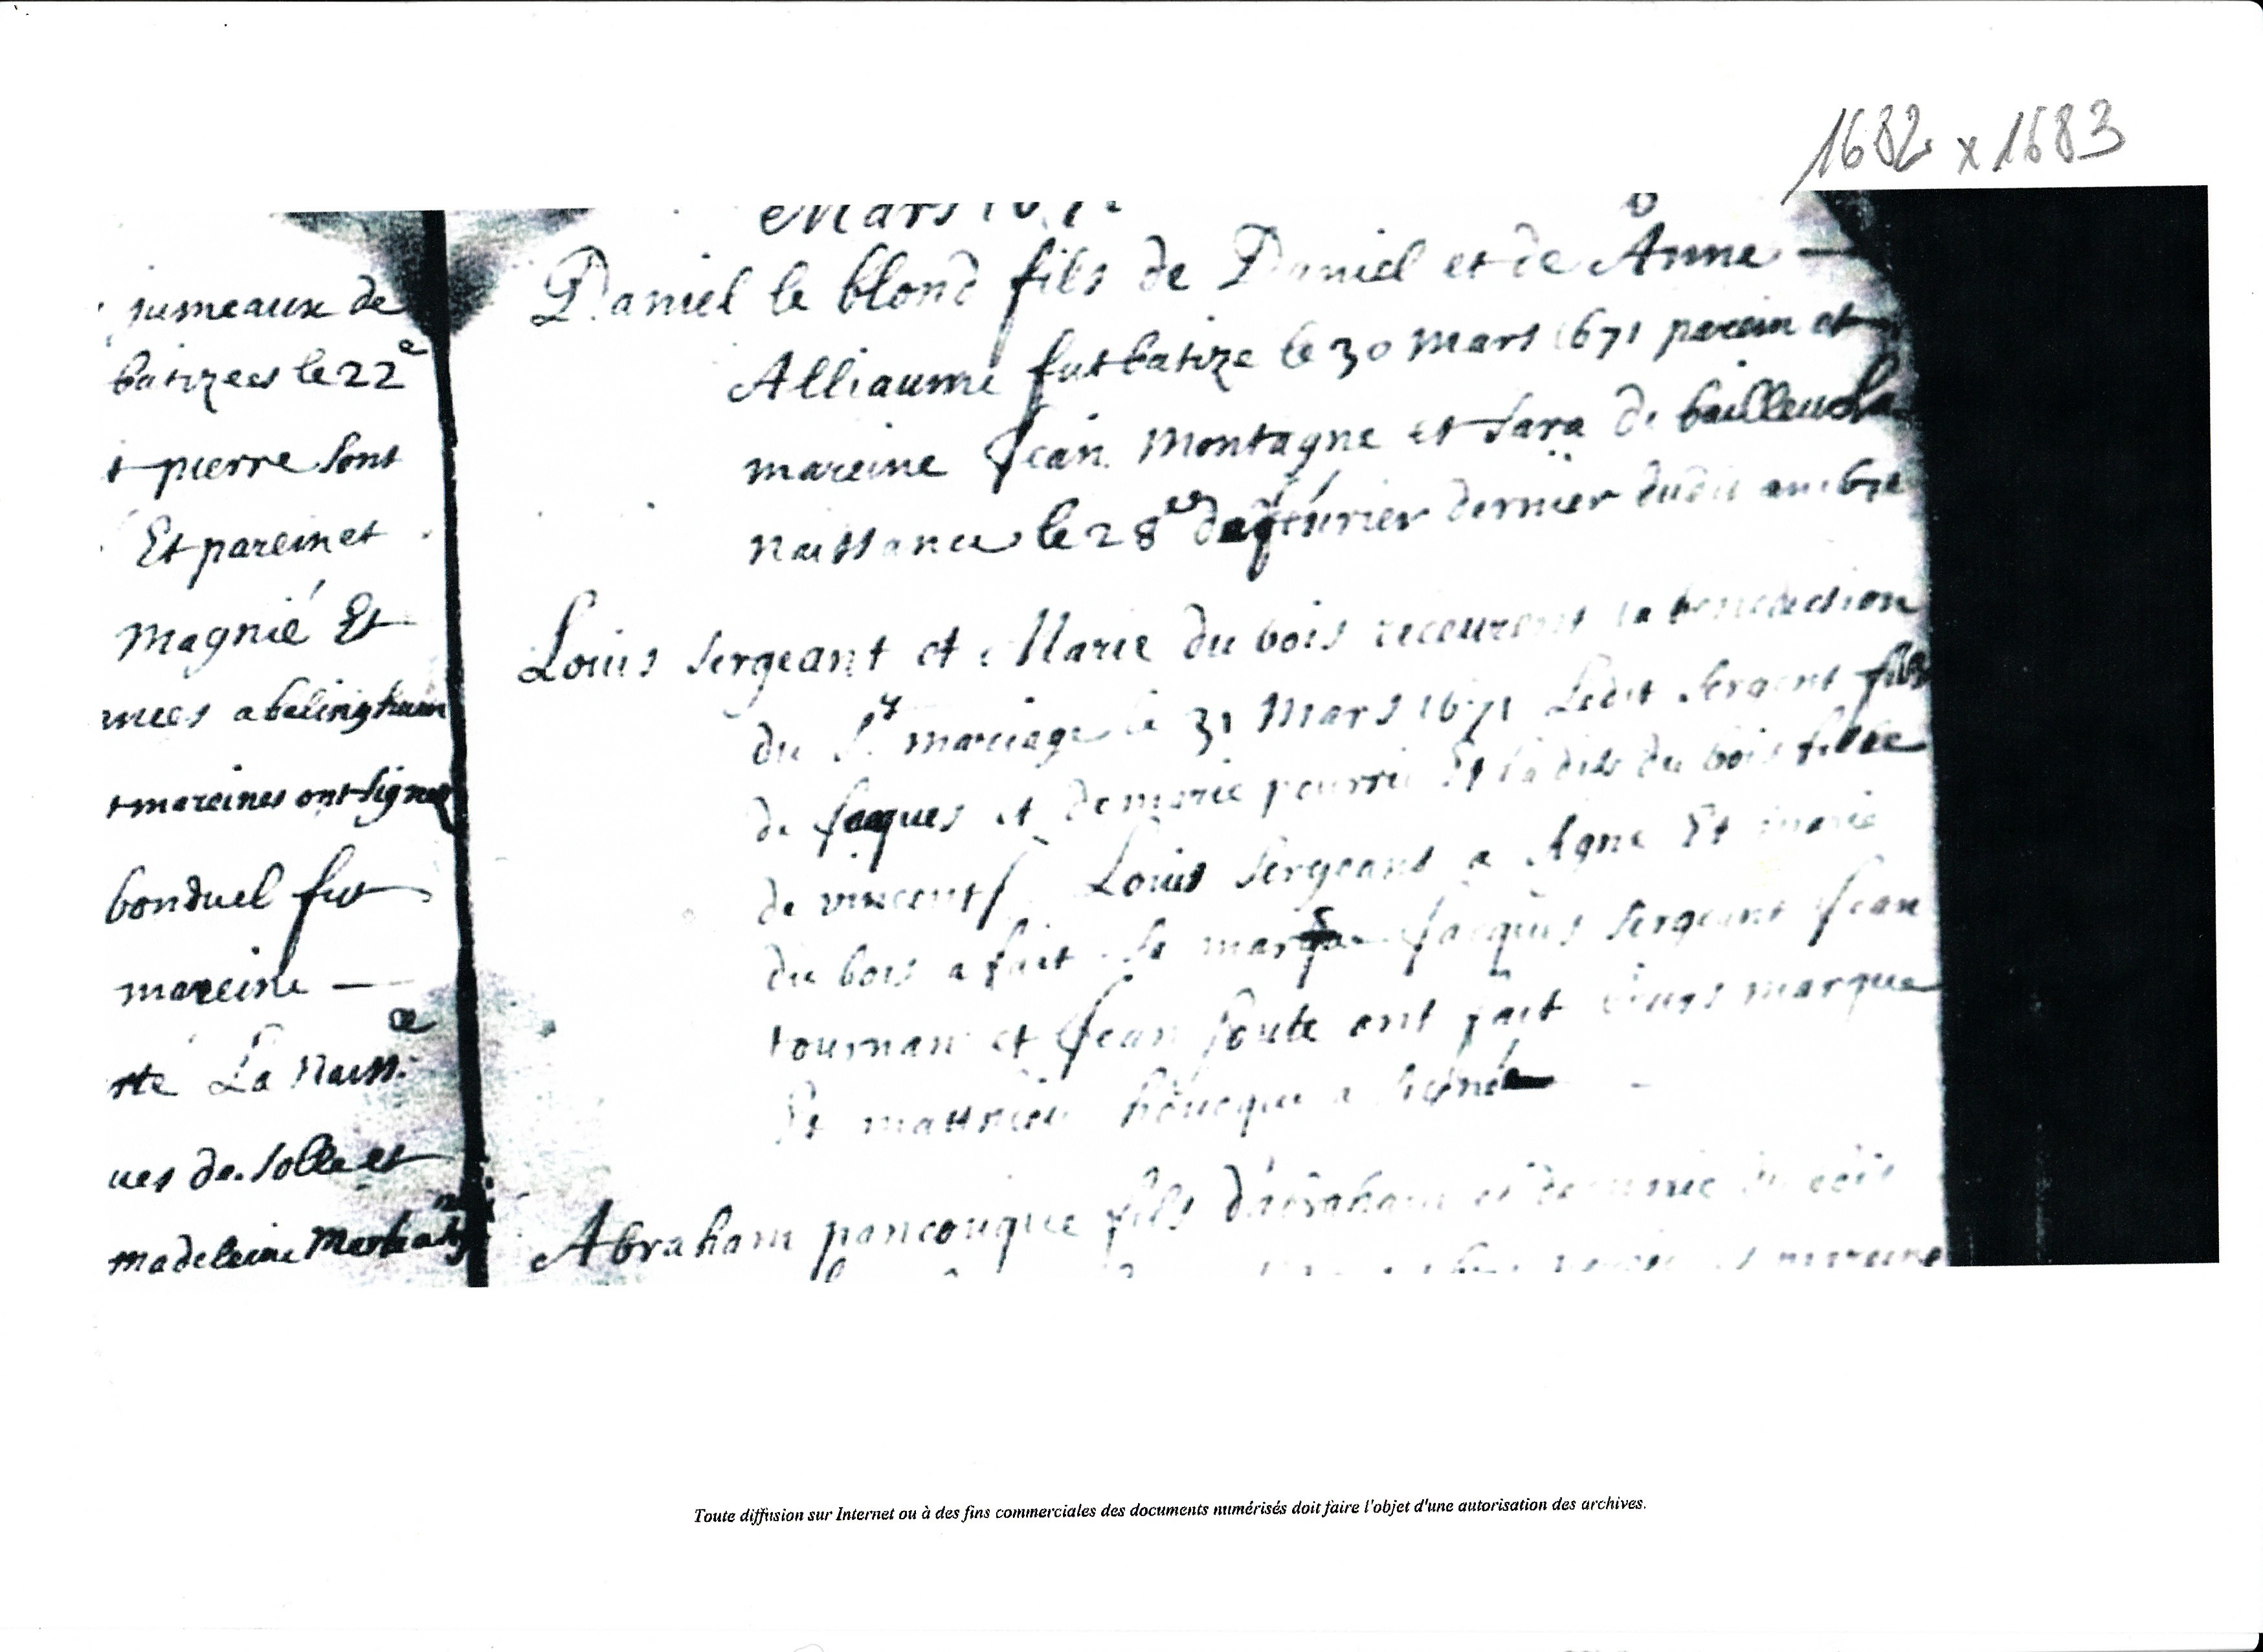 1682 x 1683
Mars 167
jumeaux de
batizees le 22e
t pierre sont
Et parein et
Magnié Et
nnees a balinghuem
t mareines ont signe
bonduel fut
mareine —
rte La Naiss.
ues de solle et
madeleine
Daniel le blond fils de Daniel et de Anne —
Alliaume fut batize le 30 Mars 1671 parein et
mareine Jean Montagne et Sara de
naissance le 28 feurier dernier dudit an
Louis Sergeant et Marie du bois receurent la benediction
du St mariage le 31 Mars 1671 Ledit Sergent fils
de Jaques et de marie Et la dite du bois fille
de vincent / Louis Sergeant a signe Et marie
du bois a fait sa Jacques Sergeant Jean
tournan et Jean ont fait leurs marque
Et matthieu a signé
Abraham pancouque fils d'abraham et de
et mareine
Toute diffusion sur Internet ou à des fins commerciales des documents numérisés doit faire l'objet d'une autorisation des archives.